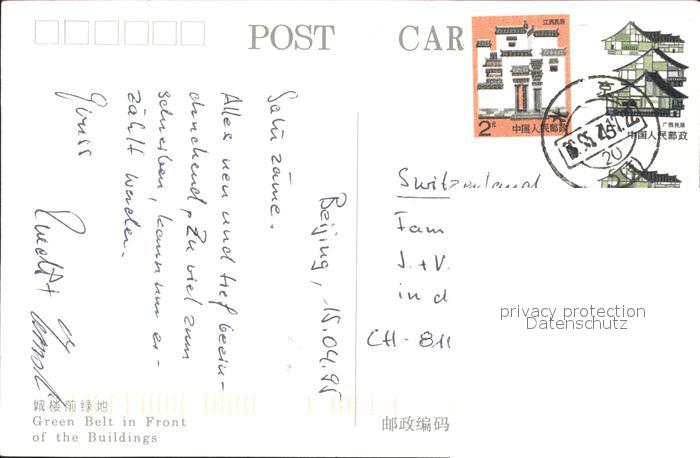 POST CAR
江西民居
2元
中国人民邮政
广西民居
中国人民邮政
北 京
20
Beijing, 15.04.95
Salü zäme.
Alles neu und tief beein-
druckend, zu viel zum
schreiben, kann nur er-
zählt werden.
Gruss
Switzerland
Fam
J. + V.
in d
CH - 811
privacy protection
Datenschutz
城楼前绿地
Green Belt in Front
of the Buildings
邮政编码